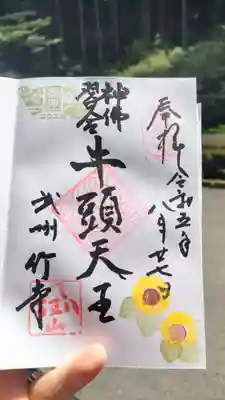 奉拝 令和五年
八月廿七日
神佛
習合
牛頭天王
武州竹寺